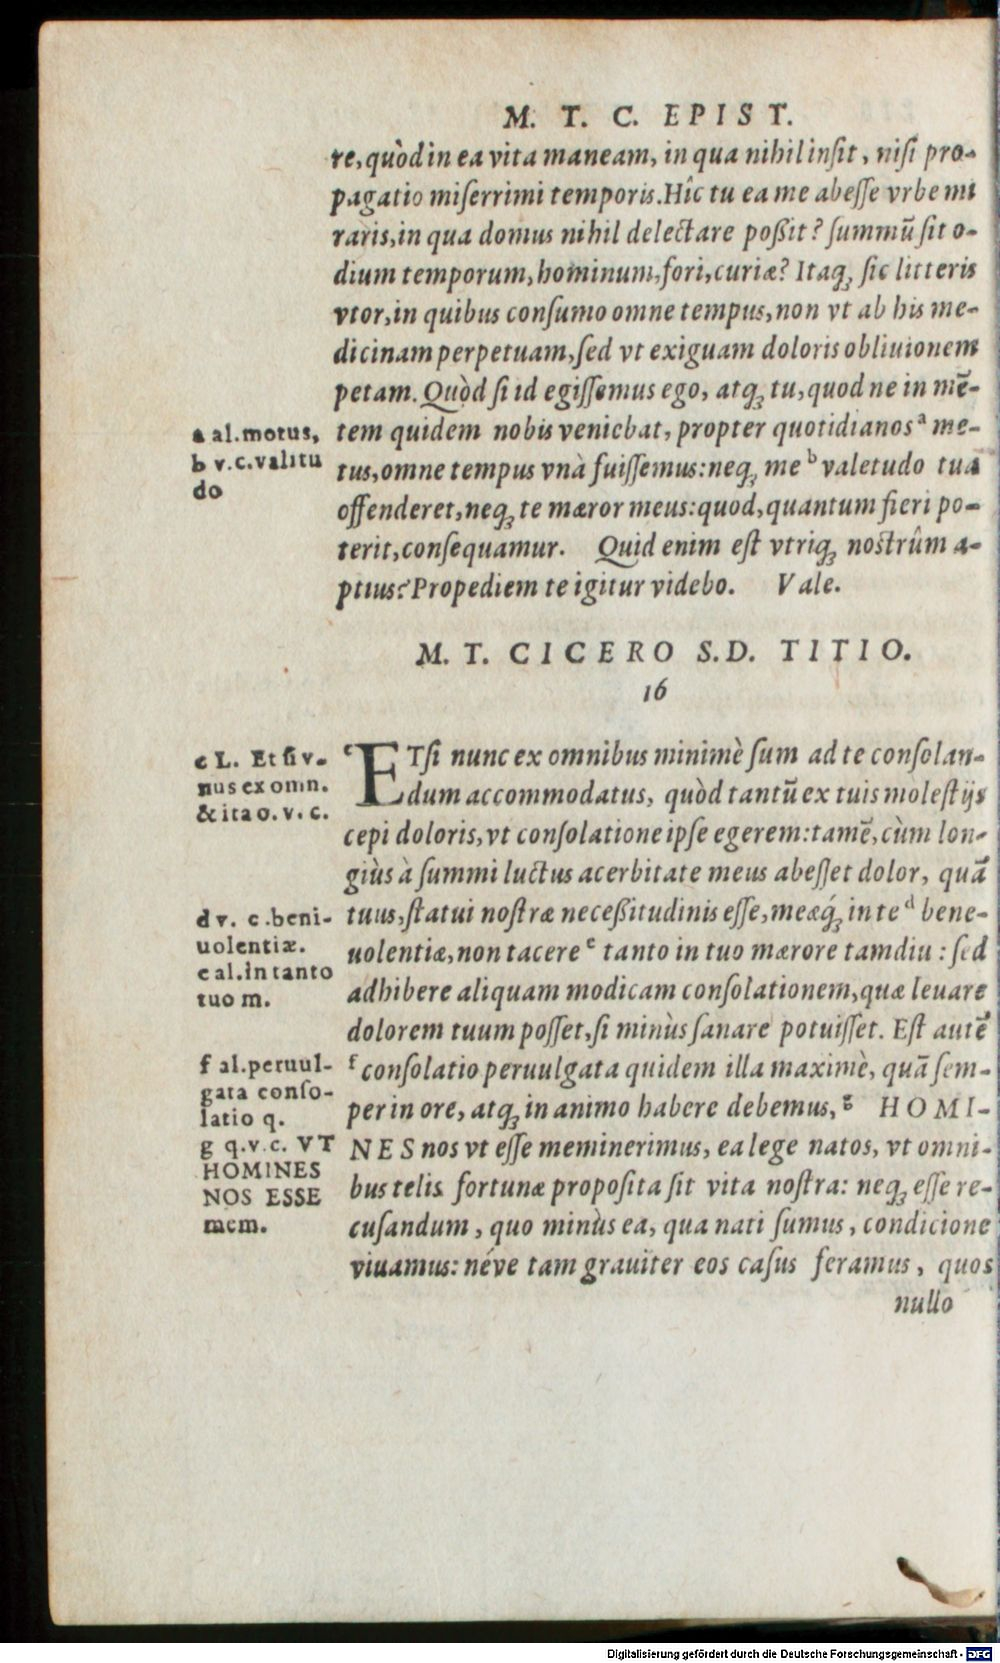 M. T. C. EPIST.
re, quòd in ea vita maneam, in qua nihil insit, nisi pro-
pagatio miserrimi temporis. Hîc tu ea me abesse vrbe mi
raris, in qua domus nihil delectare poßit? summũ sit o-
dium temporum, hominum, fori, curiæ? Itaq; sic litteris
vtor, in quibus consumo omne tempus, non vt ab his me-
dicinam perpetuam, sed vt exiguam doloris obliuionem
petam. Quòd si id egissemus ego, atq; tu, quod ne in mẽ-
a al. motus, tem quidem nobis veniebat, propter quotidianos a me-
b v.c. valitu tus, omne tempus vnà fuissemus: neq; me b valetudo tua
do offenderet, neq; te mæror meus: quod, quantum fieri po-
terit, consequamur. Quid enim est vtriq; nostrûm a-
ptius? Propediem te igitur videbo. Vale.
M. T. CICERO S. D. TITIO.
16
c L. Et si v- c ETsi nunc ex omnibus minimè sum ad te consolan-
nus ex omn. dum accommodatus, quòd tantũ ex tuis molestijs
& ita o. v. c. cepi doloris, vt consolatione ipse egerem: tamẽ, cùm lon-
giùs à summi luctus acerbitate meus abesset dolor, quã
d v. c. beni- tuus, statui nostræ neceßitudinis esse, meæq́; in te d bene-
uolentiæ. uolentiæ, non tacere e tanto in tuo mærore tamdiu: sed
e al. in tanto adhibere aliquam modicam consolationem, quæ leuare
tuo m. dolorem tuum posset, si minùs sanare potuisset. Est autẽ
f al. peruul- f consolatio peruulgata quidem illa maximè, quã sem-
gata conso- per in ore, atq; in animo habere debemus, g HOMI-
latio q.
g q.v.c. VT NES nos vt esse meminerimus, ea lege natos, vt omni-
HOMINES bus telis fortunæ proposita sit vita nostra: neq; esse re-
NOS ESSE cusandum, quo minùs ea, qua nati sumus, condicione
mem. viuamus: néve tam grauiter eos casus feramus, quos
nullo
Digitalisierung gefördert durch die Deutsche Forschungsgemeinschaft - DFG